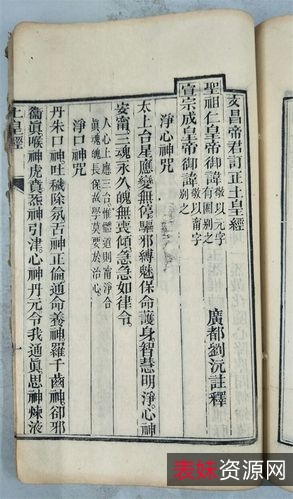 文昌帝君訂正土皇經
廣都劉沅註釋
聖祖仁皇帝御諱敬以元字有圈別之
宣宗成皇帝御諱敬以甯字別之
淨心神咒
太上台星應變無停驅邪縛魅保命護身智慧明淨心神
安甯三魂永久魄無喪傾急急如律令
人心上應三台惟體道則甯淨合
眞魂魄長保故學莫要於治心
淨口神咒
丹朱口神吐穢除氛舌神正倫通命養神羅千齒神卻邪
衞眞喉神虎賁炁神引津心神丹元令我通眞思神煉液
土皇經
表妹资源网